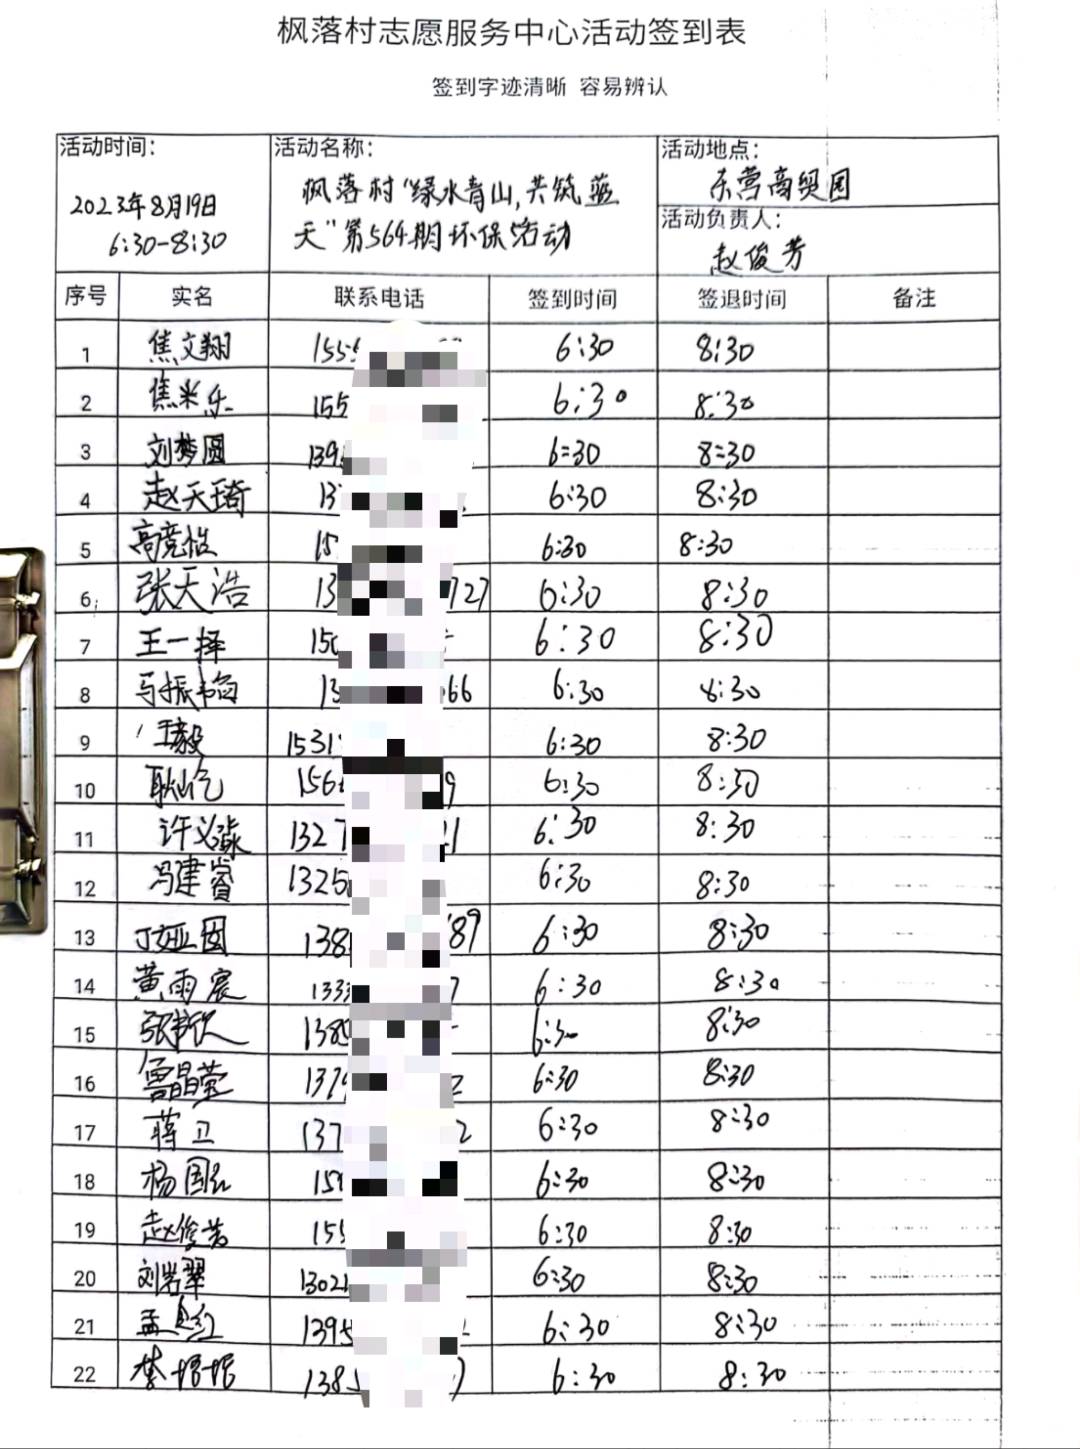 枫落村志愿服务中心活动签到表
签到字迹清晰 容易辨认
活动时间：
2023年8月19日
6:30-8:30
活动名称：
枫落村“绿水青山,共筑蓝
天”第564期环保活动
活动地点：
东营高奥园
活动负责人：
赵俊芳
序号 实名 联系电话 签到时间 签退时间 备注
1 焦文翔 155 6:30 8:30
2 焦米乐 155 6:30 8:30
3 刘梦圆 139 6:30 8:30
4 赵天琦 13 6:30 8:30
5 高竞怡 15 6:30 8:30
6 张天浩 13 727 6:30 8:30
7 王一择 150 6:30 8:30
8 马振 13 66 6:30 8:30
9 王毅 1531 6:30 8:30
10 156 9 6:30 8:30
11 许义淼 1327 1 6:30 8:30
12 冯建睿 1325 6:30 8:30
13 丁亚囡 138 89 6:30 8:30
14 黄雨宸 133 7 6:30 8:30
15 138 6:30 8:30
16 晶莹 137 2 6:30 8:30
17 蒋卫 137 2 6:30 8:30
18 杨国弘 15 6:30 8:30
19 赵俊芳 155 6:30 8:30
20 刘岩翠 1302 6:30 8:30
21 孟 红 1395 6:30 8:30
22 138 6:30 8:30